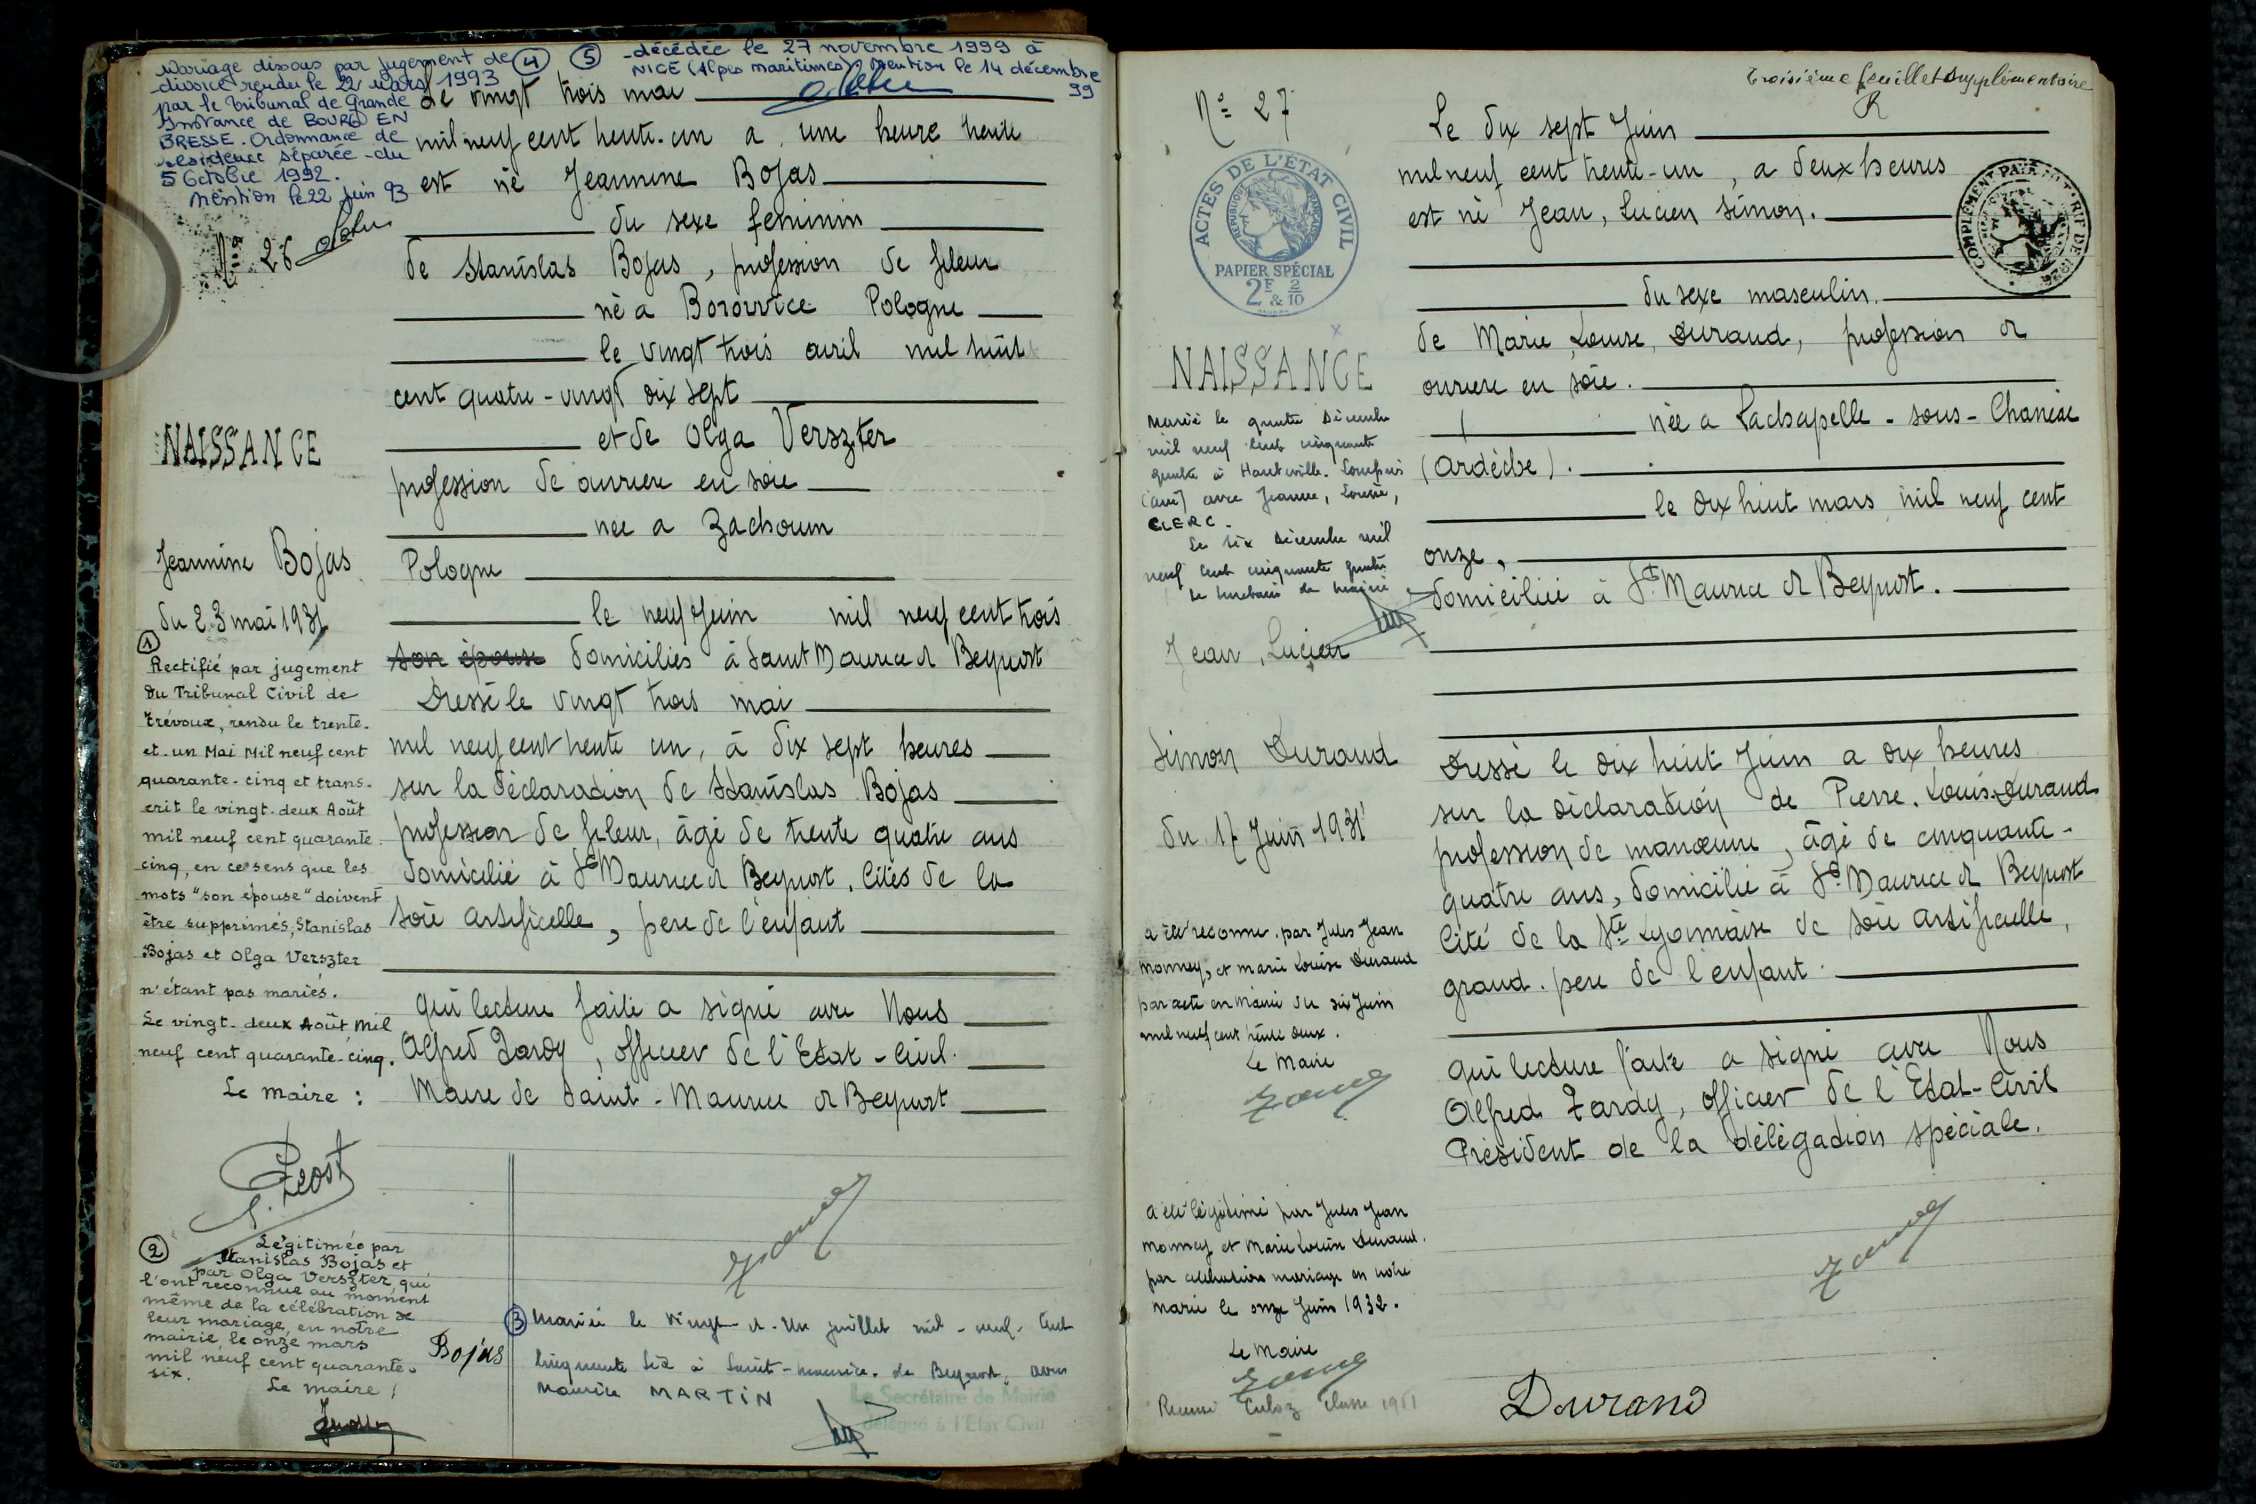 Mariage dissous par jugement de ④
divorce rendu le 22 mars 1993
par le Tribunal de Grande
Instance de BOURG EN
BRESSE. Ordonnance de
résidence séparée du
5 Octobre 1992.
Mention le 22 Juin 93
⑤ -décédée le 27 novembre 1999 à
NICE (Alpes maritimes) Mention le 14 décembre
99
Nº 26
NAISSANCE
Jeannine Bojas
du 23 mai 1931
①
Rectifié par jugement
du Tribunal Civil de
Trévoux, rendu le trente-
et-un Mai Mil neuf cent
quarante-cinq et trans-
crit le vingt-deux Août
mil neuf cent quarante
cinq, en ce sens que les
mots "son épouse" doivent
être supprimés, Stanislas
Bojas et Olga Verszter
n'étant pas mariés.
Le vingt-deux Août Mil
neuf cent quarante-cinq.
Le Maire :
②
Légitimée par
Stanislas Bojas et
par Olga Verszter, qui
l'ont reconnue au moment
même de la célébration de
leur mariage, en notre
mairie le onze mars
mil neuf cent quarante-
six.
Le maire
Le vingt trois mai
mil neuf cent trente-un a une heure trente
est né Jeannine Bojas
du sexe feminin
de Stanislas Bojas, profession de fileur
né a Borowice Pologne
le vingt trois avril mil huit
cent quatre-vingt dix sept
et de Olga Verszter
profession de ouvriere en soie
née a Zachoum
Pologne
le neuf Juin mil neuf cent trois
son épouse domiciliés à Saint Maurice de Beynost
Dressé le vingt trois mai
mil neuf cent trente un, à dix sept heures
sur la déclaration de Stanislas Bojas
profession de fileur, âgé de trente quatre ans
domicilié à St Maurice de Beynost, Cités de la
soie artificelle, pere de l'enfant
qui lecture faite a signé avec Nous
Alfred Tardy, officier de l'Etat-Civil
Maire de Saint-Maurice de Beynost
Bojas
③ Mariée le vingt-et-un juillet mil-neuf-cent
cinquante six à Saint-Maurice-de-Beynost, avec
Maurice MARTIN
Le Secrétaire de Mairie
délégué à l'Etat Civil
Troisième feuillet supplémentaire
R
Nº 27
ACTES DE L'ÉTAT CIVIL
RÉPUBLIQUE FRANÇAISE
PAPIER SPÉCIAL
2F & 2/10
NAISSANCE
Marié le quatre Décembre
mil neuf cent cinquante
quatre à Hauteville-Lompnes
(Ain) avec Jeanne, Louise,
CLERC.
Le six Décembre mil
neuf cent cinquante quatre
Le secrétaire de mairie
Jean, Lucien
Simon Durand
du 17 Juin 1931
a été reconnu par Jules Jean
Monney, et Marie Louise Durand
par acte en Mairie du six Juin
mil neuf cent trente deux.
Le Maire
a été légitimé par Jules Jean
Monney et Marie Louise Durand.
par célébration mariage en notre
mairie le onze Juin 1932.
Le Maire
Recensé Culoz classe 1951
Le dix sept Juin
mil neuf cent trente-un, a deux heures
est né Jean, Lucien Simon.
COMPLEMENT PAYÉ TARIF DE 1926
du sexe masculin.
de Marie, Louise, Durand, profession de
ouvriere en soie.
née a Lachapelle-sous-Chanéac
(Ardèche).
le dix huit mars mil neuf cent
onze,
domiciliée à St Maurice de Beynost.
Dressé le dix huit Juin a dix heures
sur la déclaration de Pierre. Louis. Durand
profession de manœuvre, âgé de cinquante-
quatre ans, domicilié à St Maurice de Beynost
Cité de la Sté Lyonnaise de Soie Artificielle,
grand. pere de l'enfant.
qui lecture faite a signé avec Nous
Alfred Tardy, officier de l'Etat-Civil
Président de la délégation spéciale.
Durand